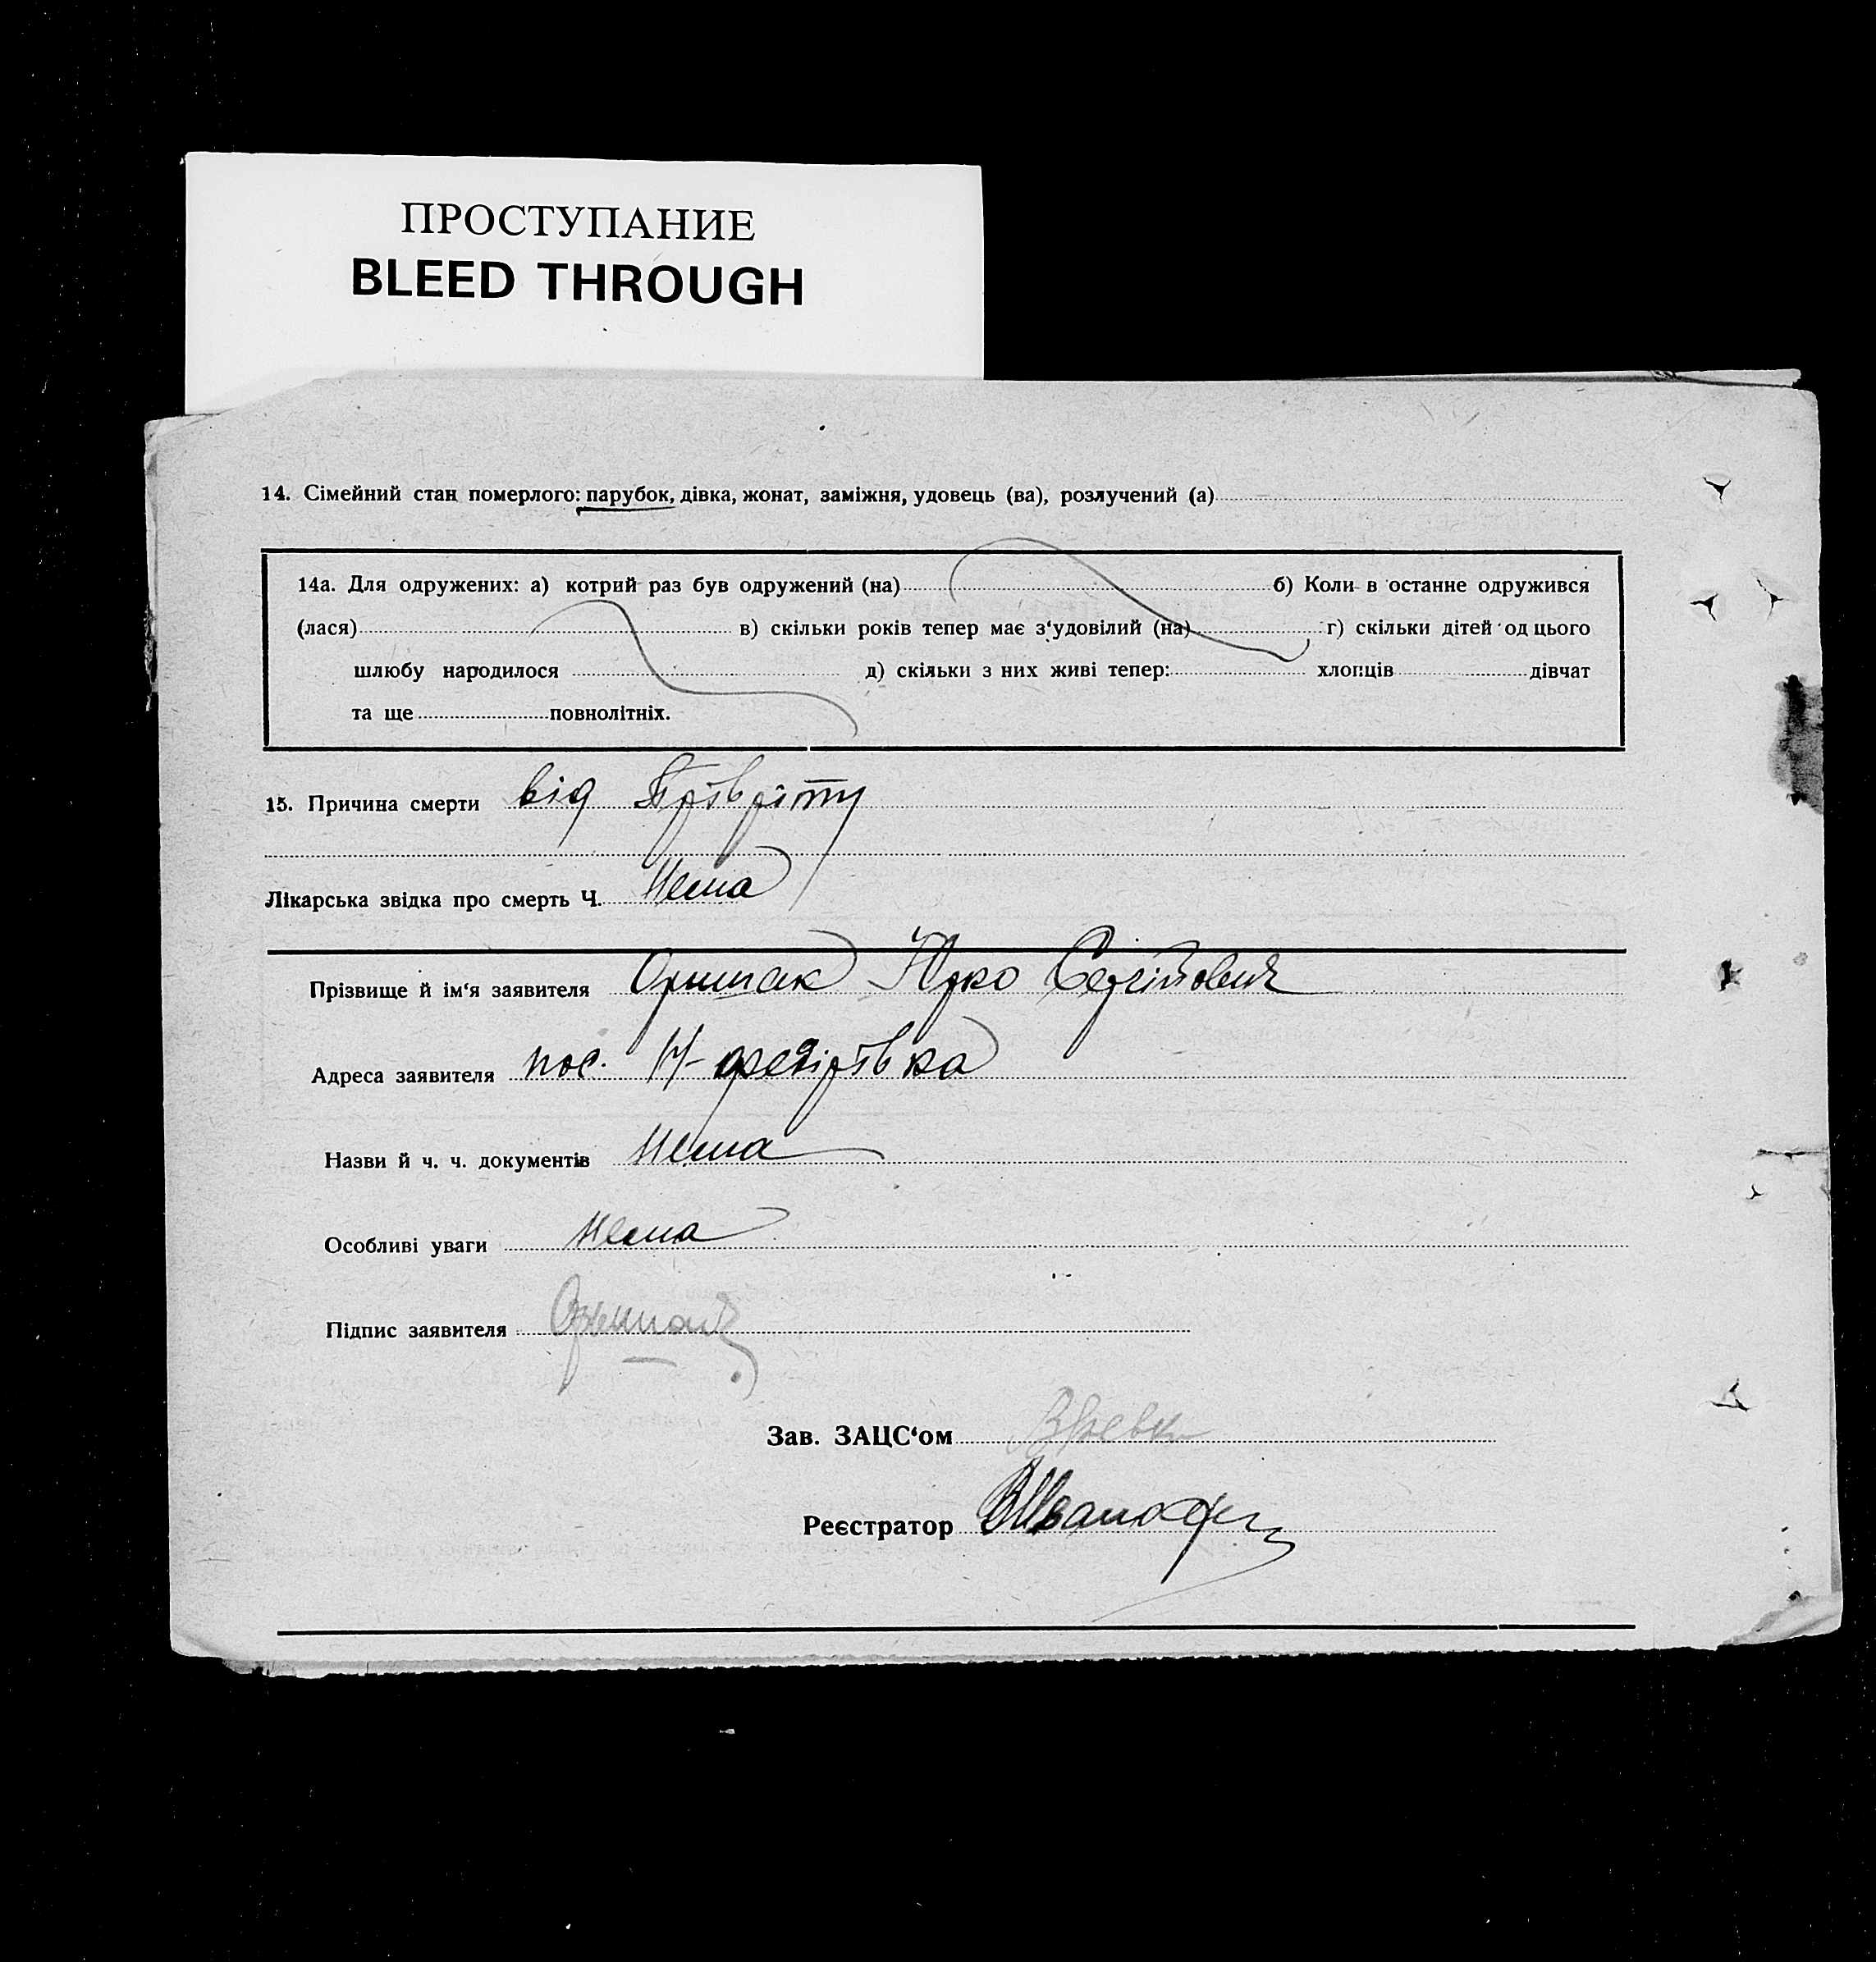 ПРОСТУПАНИЕ
BLEED THROUGH
14. Сімейний стан померлого: парубок, дівка, жонат, заміжня, удовець (ва), розлучений (а)
14а. Для одружених: а) котрий раз був одружений (на) б) Коли в останне одружився
(лася) в) скільки років тепер має з‘удовілий (на) г) скільки дітей од цього
шлюбу народилося д) скільки з них живі тепер: хлопців дівчат
та ще повнолітніх.
15. Причина смерти від
Лікарська звідка про смерть Ч. Нема
Прізвище й ім‘я заявителя Оришак Юрко Сергійович
Адреса заявителя пос. Н-федірівка
Назви й ч. ч. документів Нема
Особливі уваги Нема
Підпис заявителя
Зав. ЗАЦС‘ом
Реєстратор